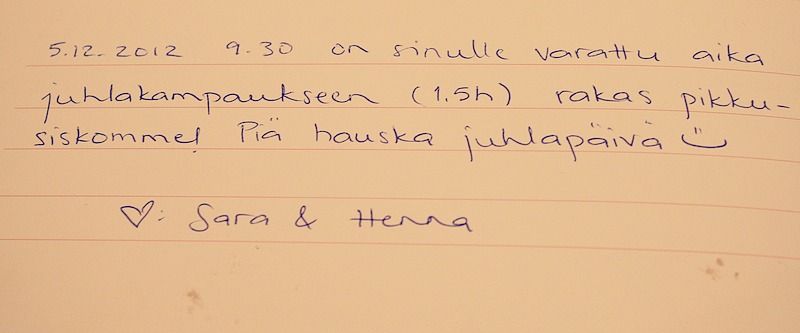 5.12.2012 9.30 on sinulle varattu aika
juhlakampaukseen (1.5h) rakas pikku-
siskomme! Piä hauska juhlapäivä :)
♡: Sara & Henna